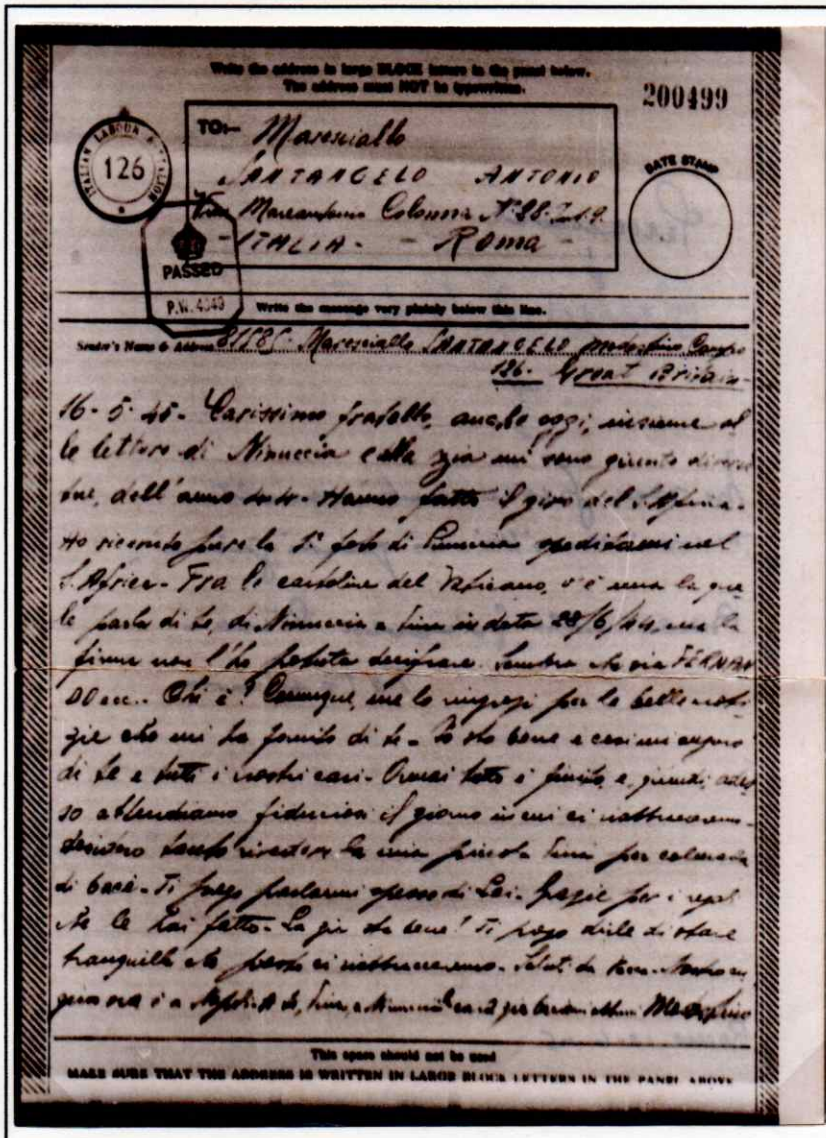 Write the address in large BLOCK letters in the panel below.
The address must NOT be typewritten.
200499
ITALIAN LABOUR BATTALION
126
TO:— Maresciallo
SANTANGELO ANTONIO
Via Marcantonio Colonna N°28.
-ITALIA- - Roma -
DATE STAMP
PASSED
P.W. 4049
Write the message very plainly below this line.
Sender's Name & Address 81585- Maresciallo SANTANGELO Modestino Campo
126- Great Britain-
16-5-45- Carissimo fratello, anche oggi, insieme al
le lettere di Ninuccia e alla zia mi sono giunte diverse
tue, dell'anno - Hanno fatto il giro del S. Africa-
Ho ricevuto pure la 1ª foto di speditami nel
S. Africa- Fra le cartoline del Vaticano, v'è una la qua
le parla di te, di Ninuccia e Lina in data 28/6/44, ma la
firma non l'ho potuta decifrare. Sembra che sia FERNAN
DO Chi è? Comunque, me lo ringrazi per le belle noti
zie che mi ha fornito di te- Io sto bene e così mi auguro
di te e tutti i nostri cari- Ormai tutto è finito e, quindi, ades
so attendiamo fiduciosi il giorno in cui ci riabbracceremo-
Desidero tanto rivedere la mia piccola per colmarla
di baci- Ti prego parlarmi spesso di Lei- Grazie per i regali
che le hai fatto- La zia sta bene? Ti prego dirle di stare
tranquilla che presto ci riabbracceremo- Saluti da Nostro cu
gino ora è a Napoli- A te, e Ninuccia cara zia Modestino
This space should not be used
MAKE SURE THAT THE ADDRESS IS WRITTEN IN LARGE BLOCK LETTERS IN THE PANEL ABOVE